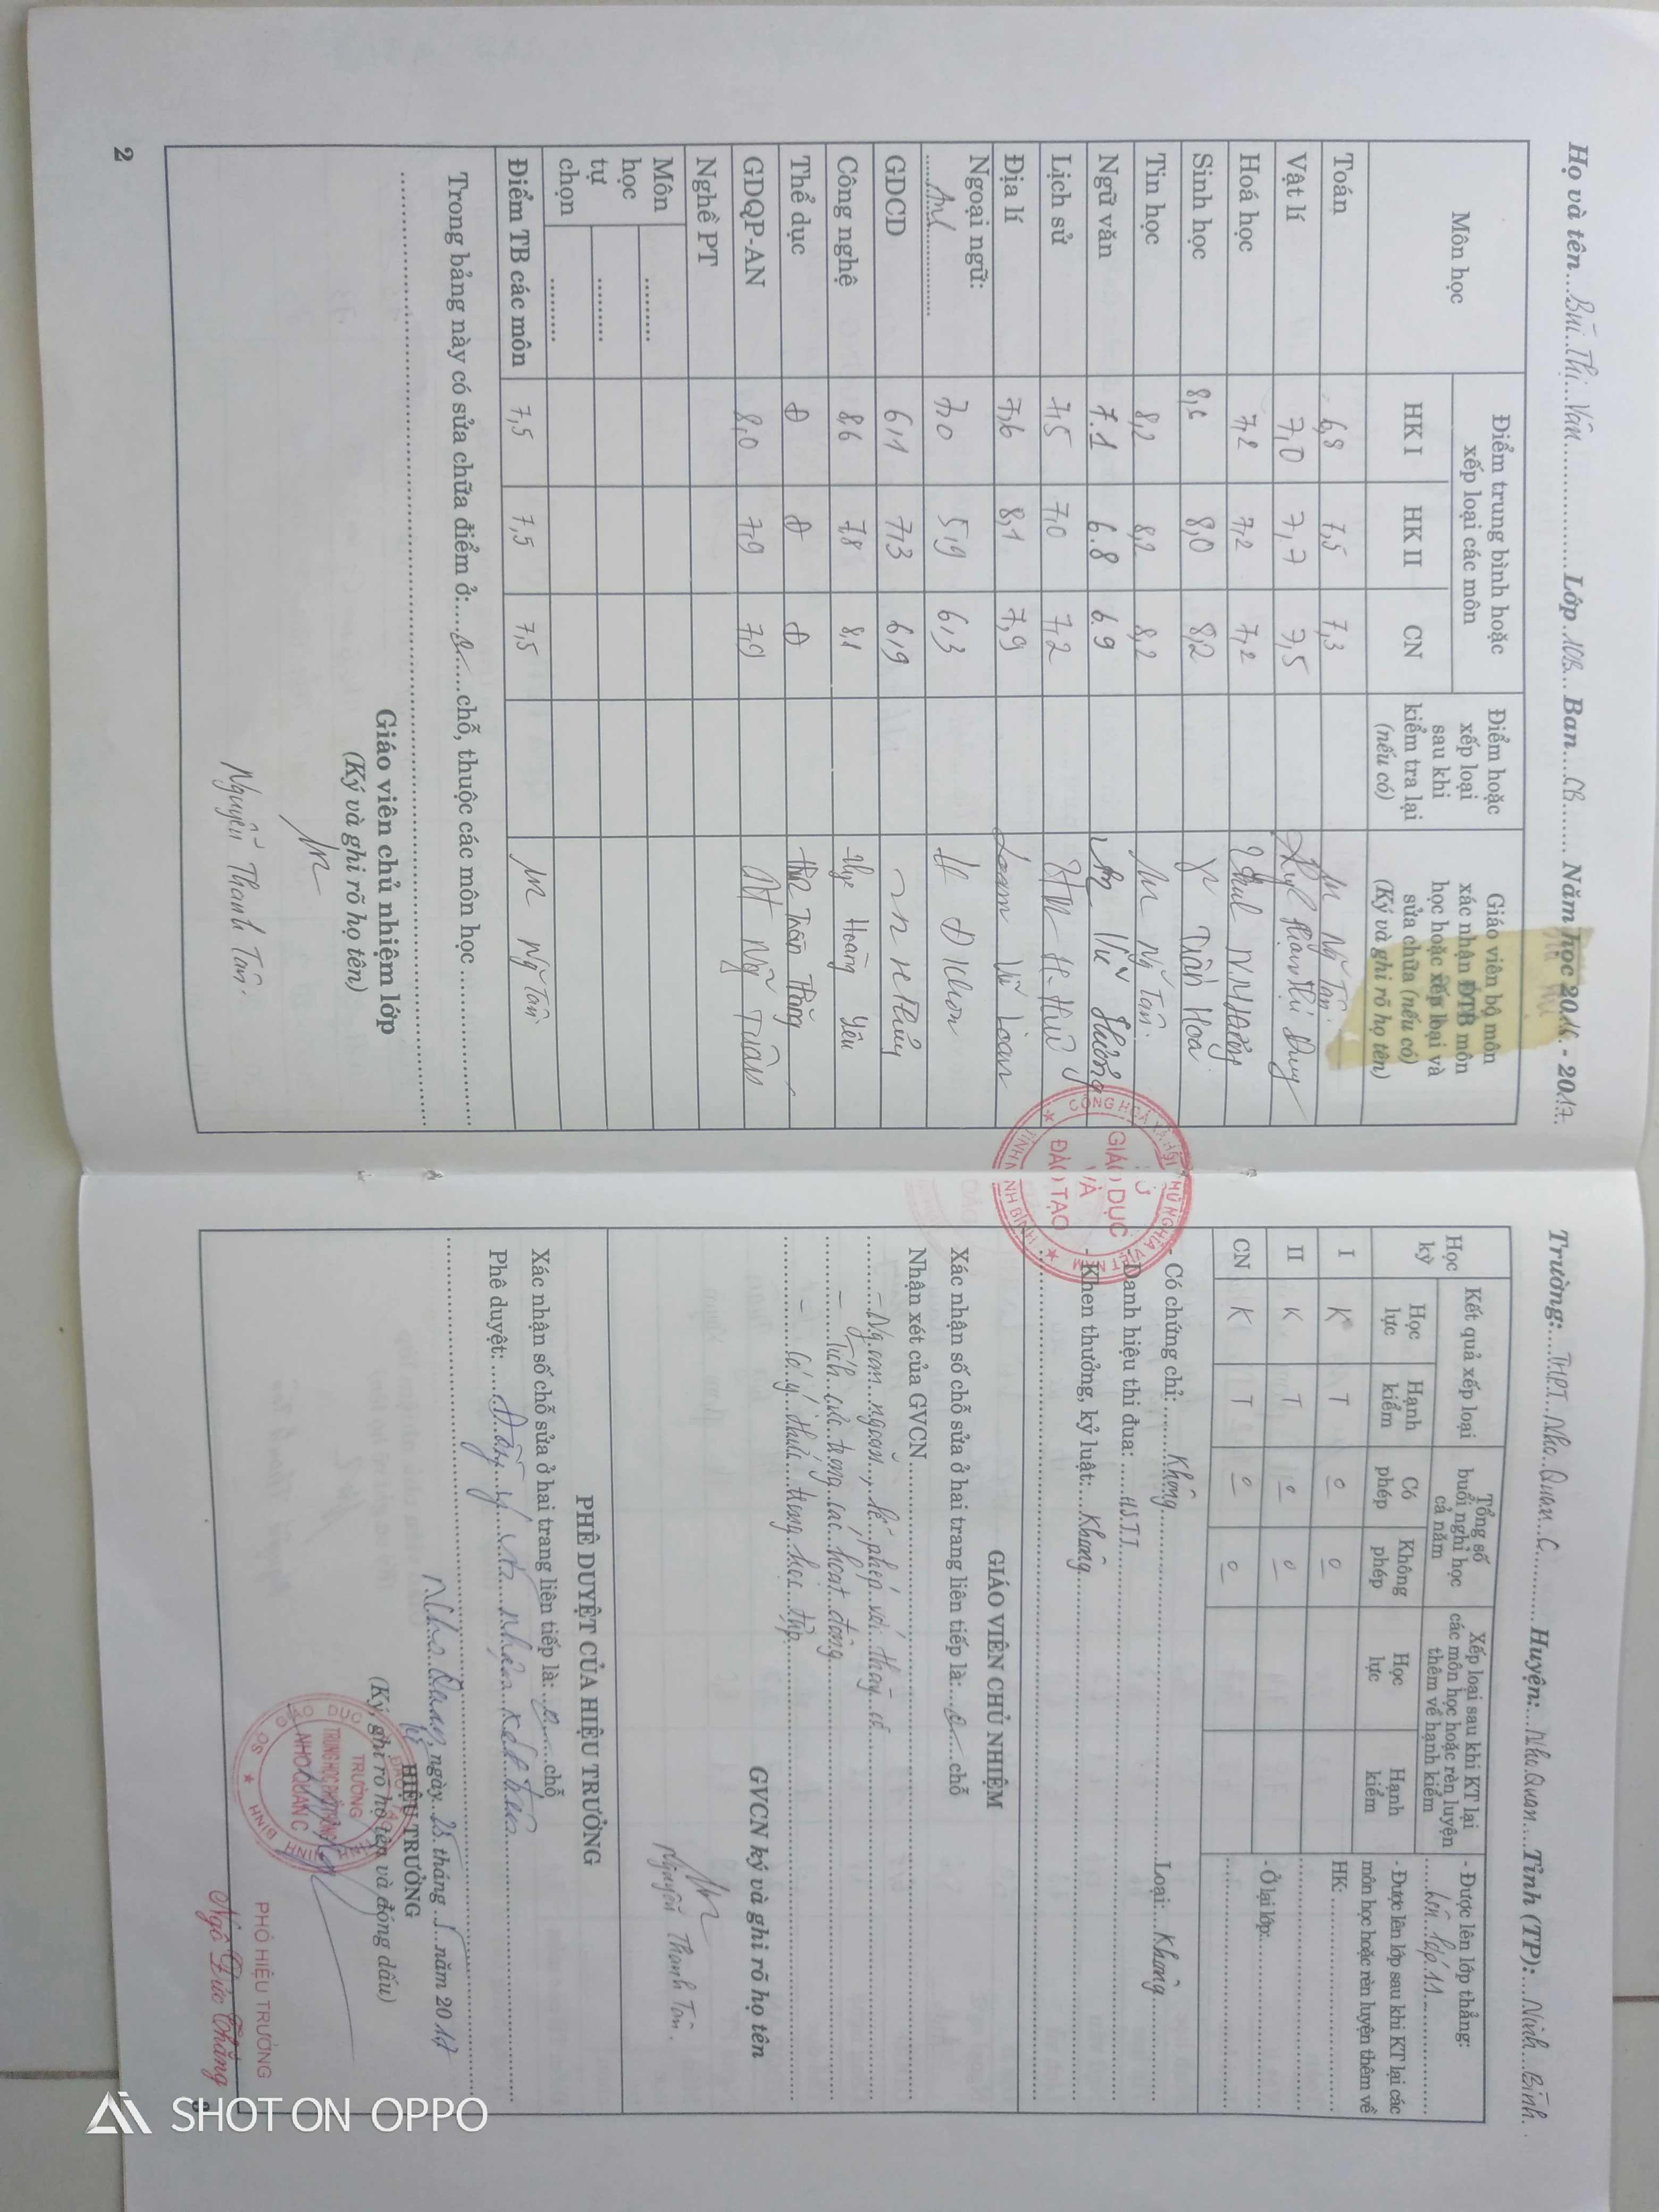 Họ và tên...Bùi Thị Vân...Lớp 10B...Ban...CB...Năm học 2016 - 2017.
Môn học
Điểm trung bình hoặc xếp loại các môn
HK I HK II CN
Điểm hoặc xếp loại sau khi kiểm tra lại (nếu có)
Giáo viên bộ môn xác nhận ĐTB môn học hoặc xếp loại và sửa chữa (nếu có) (Ký và ghi rõ họ tên)
Toán 6,8 7,5 7,3 Ng Tân
Vật lí 7,0 7,7 7,5 Phạm Thị Duy
Hoá học 7,2 7,2 7,2
Sinh học 8,0 8,2 Trần Hoa
Tin học 8,2 8,2 8,2 Ng Tân
Ngữ văn 7.1 6.8 6.9 Vũ Hường
Lịch sử 7,5 7,0 7,2
Địa lí 7,6 8,1 7,9 Vũ Loan
Ngoại ngữ: Anh 7,0 5,9 6,3
GDCD 6,1 7,3 6,9
Công nghệ 8,6 7,8 8,1 Hoàng Yên
Thể dục Đ Đ Đ Trần Thắng
GDQP-AN 8,0 7,9 7,9 Ng Tuấn
Nghề PT
Môn học tự chọn
Điểm TB các môn 7,5 7,5 7,5 Ng Tân
Trong bảng này có sửa chữa điểm ở:...0...chỗ, thuộc các môn học
Giáo viên chủ nhiệm lớp
(Ký và ghi rõ họ tên)
Nguyễn Thanh Tân
2
CỘNG HOÀ XÃ HỘI CHỦ NGHĨA VIỆT NAM
GIÁO DỤC
VÀ
ĐÀO TẠO
NINH BÌNH
Trường:...THPT Nho Quan C...Huyện:...Nho Quan...Tỉnh (TP):...Ninh Bình.
Học kỳ
Kết quả xếp loại
Học lực Hạnh kiểm
Tổng số buổi nghỉ học cả năm
Có phép Không phép
Xếp loại sau khi KT lại các môn học hoặc rèn luyện thêm về hạnh kiểm
Học lực Hạnh kiểm
I K T 0 0
II K T 0 0
CN K T 0 0
- Được lên lớp thẳng:
Lên lớp 11
- Được lên lớp sau khi KT lại các môn học hoặc rèn luyện thêm về
HK:
- Ở lại lớp:
- Có chứng chỉ:...Không...Loại:...Không
- Danh hiệu thi đua:...H.S.T.T
- Khen thưởng, kỷ luật:...Không
GIÁO VIÊN CHỦ NHIỆM
Xác nhận số chỗ sửa ở hai trang liên tiếp là:...0...chỗ
Nhận xét của GVCN
- Ngoan ngoãn, lễ phép với thầy cô
- Tích cực trong các hoạt động
- Có ý thức trong học tập
GVCN ký và ghi rõ họ tên
Nguyễn Thanh Tân.
PHÊ DUYỆT CỦA HIỆU TRƯỞNG
Xác nhận số chỗ sửa ở hai trang liên tiếp là:...0...chỗ
Phê duyệt:...Đồng ý với nhận xét trên
Nho Quan, ngày 25 tháng 5 năm 2017
HIỆU TRƯỞNG
(Ký, ghi rõ họ tên và đóng dấu)
SỞ GIÁO DỤC ĐÀO TẠO NINH BÌNH
TRƯỜNG
TRUNG HỌC PHỔ THÔNG
NHO QUAN C
PHÓ HIỆU TRƯỞNG
Ngô Đức Thắng
SHOT ON OPPO